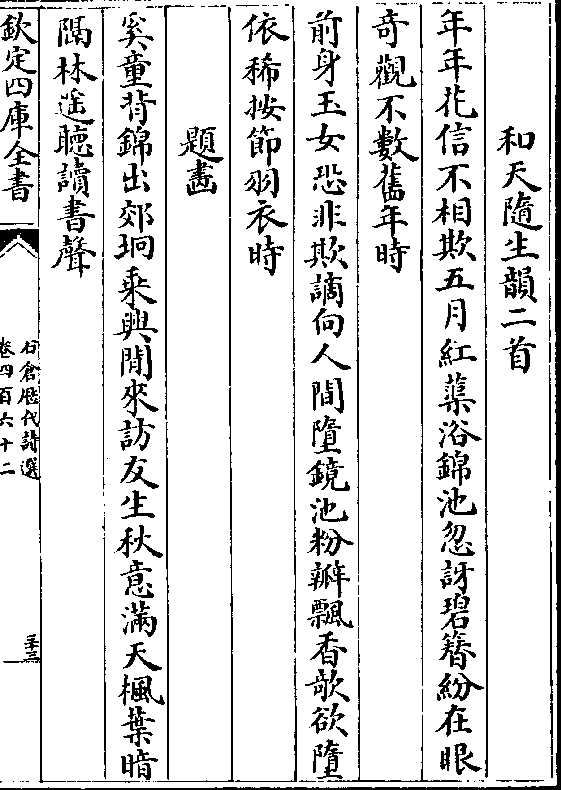 和天隨生韻二首
年年花信不相欺五月紅蕖浴錦池忽訝碧簮紛在眼
奇觀不數舊年時
前身玉女恐非欺謫向人間墮鏡池粉瓣飄香欹欲墮
依稀按節羽衣時
題畫
奚童背錦出郊坰乘興閒來訪友生秋意滿天楓葉暗
隔林遥聽讀書聲
欽定四庫全書
石倉歴代詩選
卷四百六十二
三十三